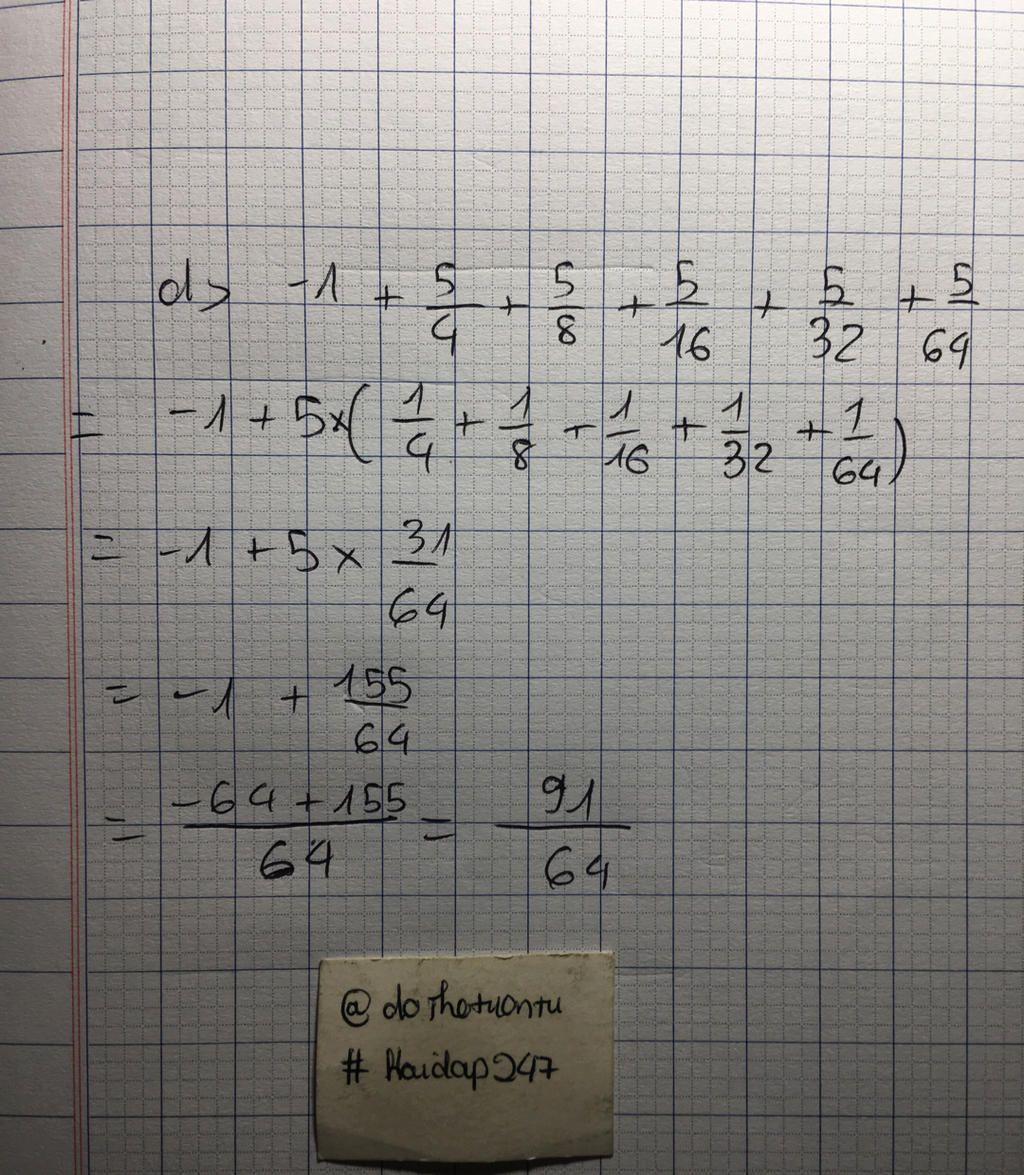 d> -1 + 5/4 + 5/8 + 5/16 + 5/32 + 5/64
= -1 + 5×( 1/4 + 1/8 + 1/16 + 1/32 + 1/64 )
= -1 + 5 × 31/64
= -1 + 155/64
= (-64 + 155)/64 = 91/64
@dothetuontu
# Hoidap247